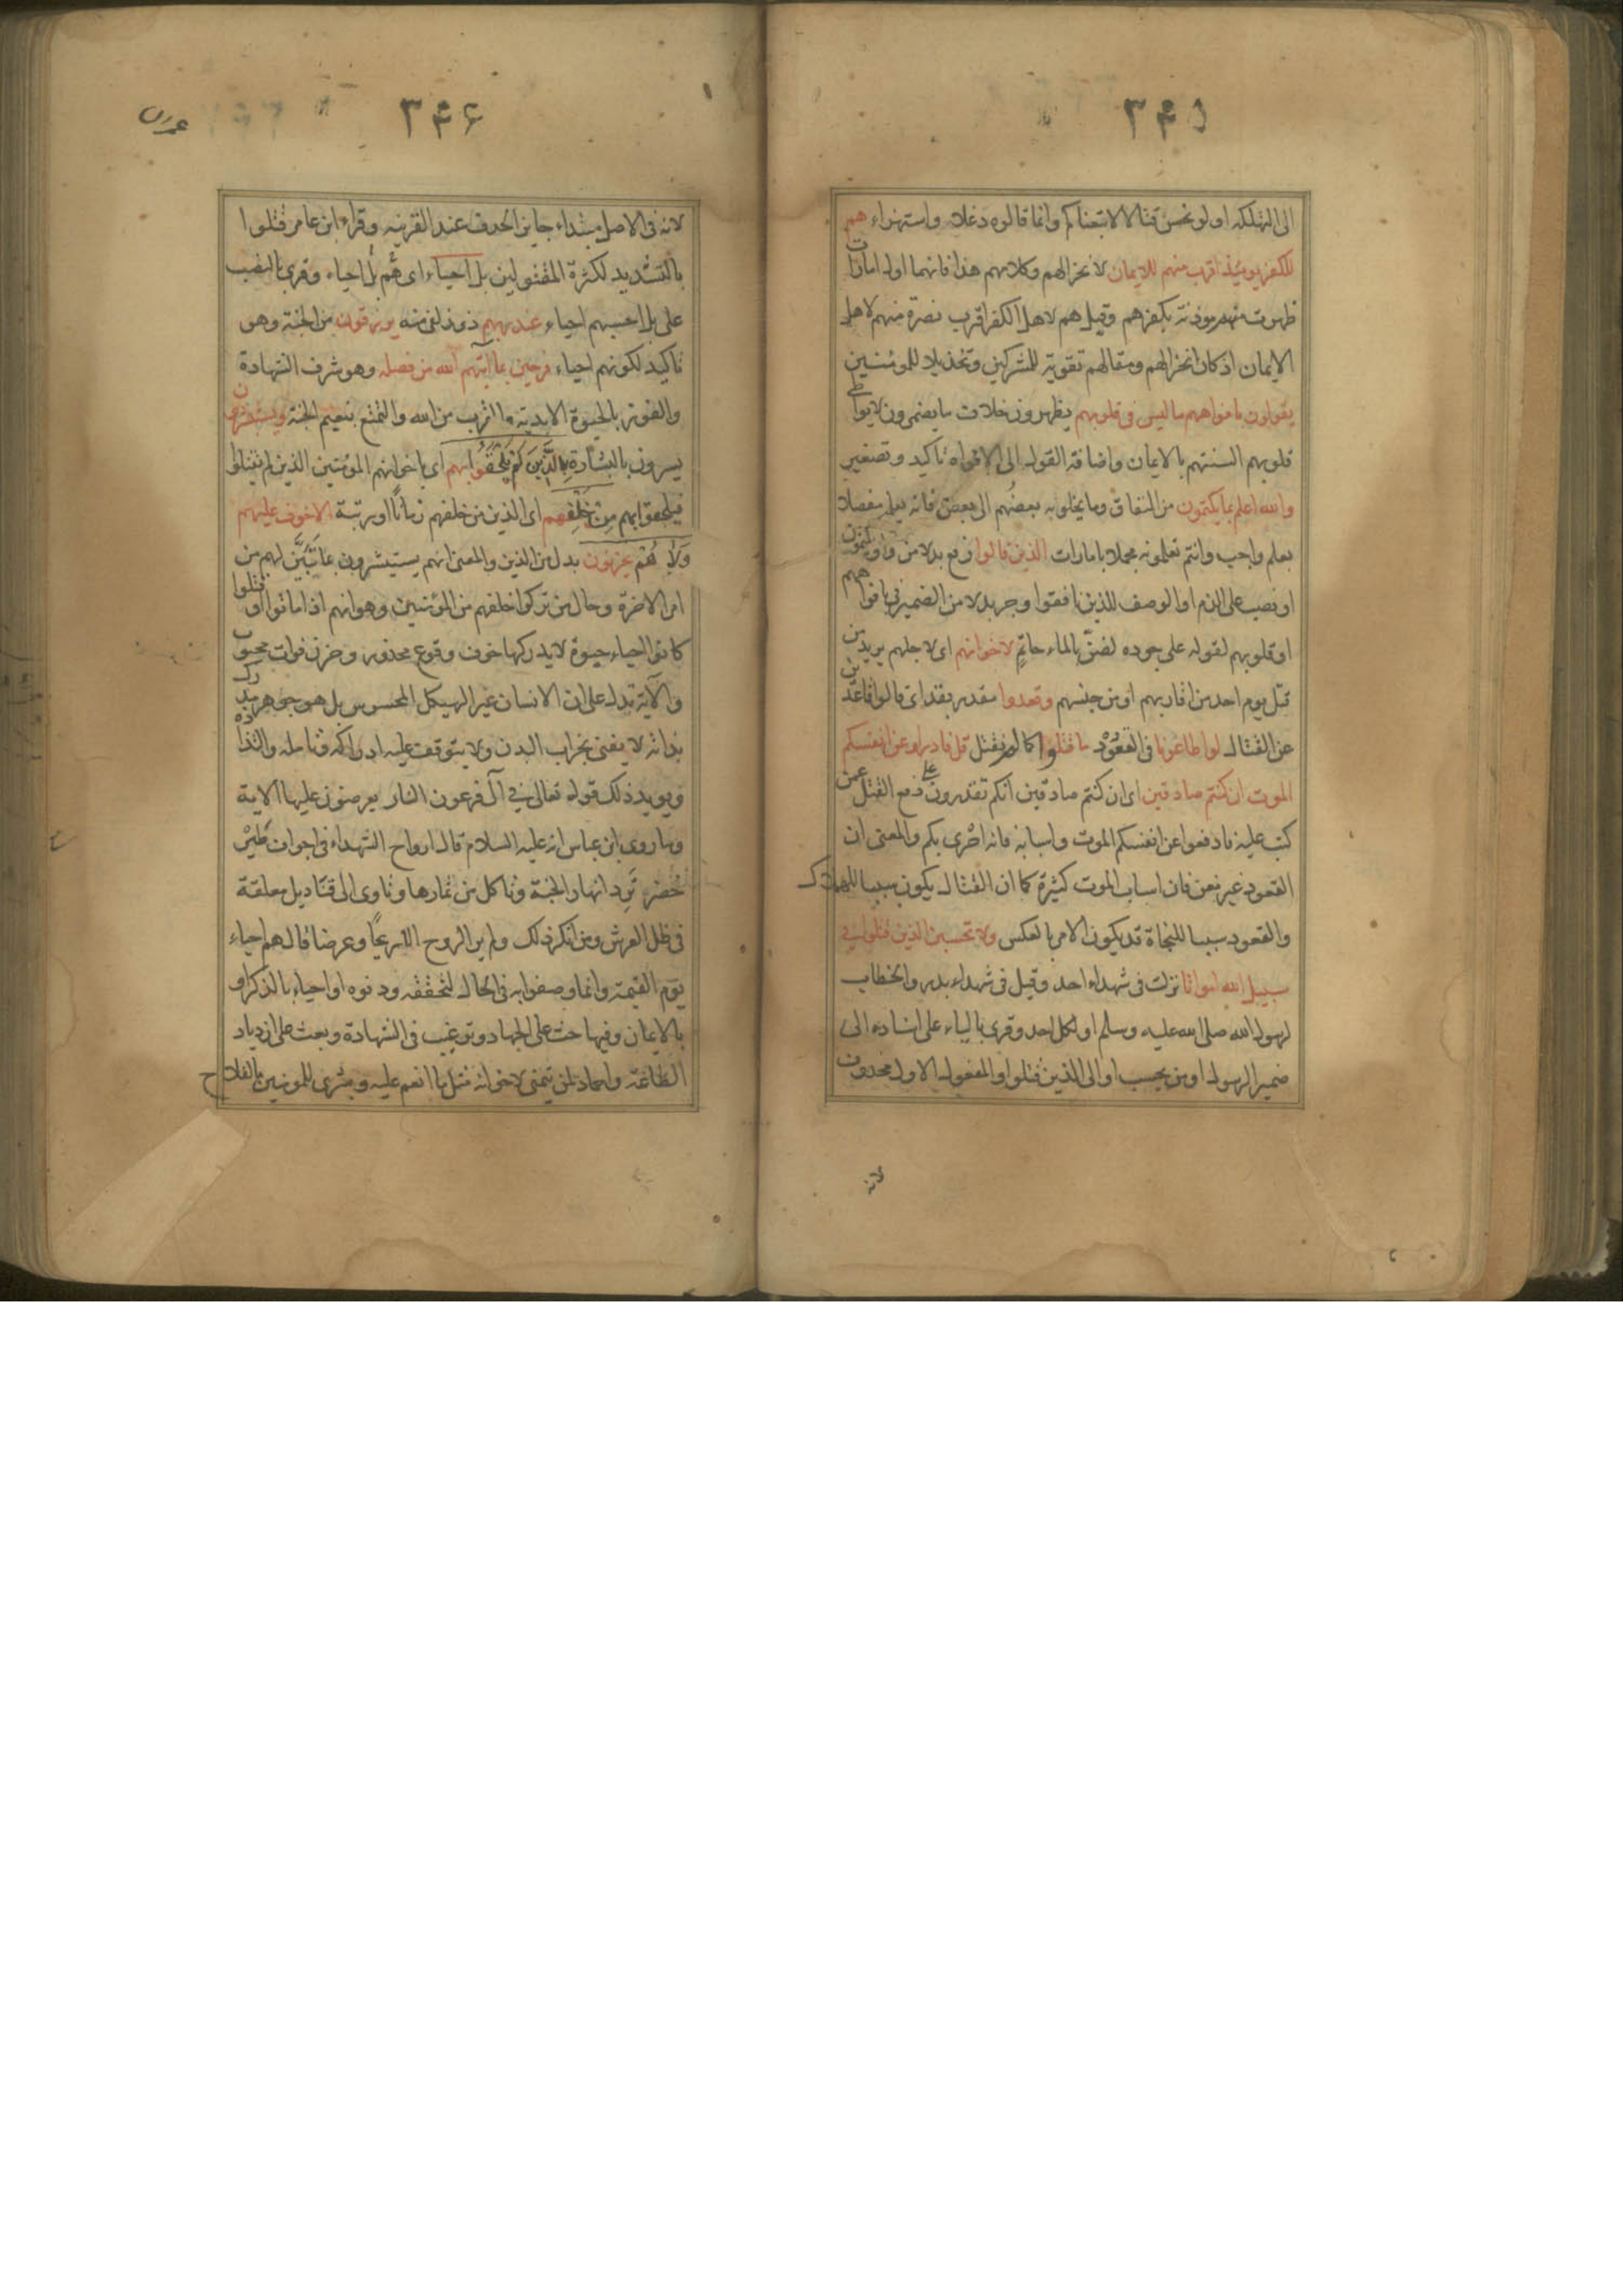 ٣٤٥
الى التهلكة او لو نحسن قتالا لاتبعناكم وانما قالوه دغلا واستهزاء هم
للكفر يومئذ اقرب منهم للايمان لانخزالهم وكلامهم هذا فانهما اول امارات
ظهرت منهم موذنة بكفرهم وقيل هم لاهل الكفر اقرب نصرة منهم لاهل
الايمان اذ كان انخزالهم ومقالهم تقوية للمشركين وتخذيلا للمومنين
يقولون بافواههم ما ليس فى قلوبهم يظهرون خلاف ما يضمرون لا يواطى
قلوبهم السنتهم بالايمان واضافة القول الى الافواه تاكيد وتصغير
والله اعلم بما يكتمون من النفاق وما يخلو به بعضهم الى بعض فانه يعلم مفصلا
بعلم واجب وانتم تعلمونه مجملا بامارات الذين قالوا رفع بدلا من واو يكتمون
او نصب على الذم او الوصف للذين نافقوا وجر بدلا من الضمير فى بافواههم
او قلوبهم لقوله على جوده لضنّ بالماء حاتمٍ لاخوانهم اى لاجلهم يريد من
قتل يوم احد من اقاربهم او من جنسهم وقعدوا مقدر بقد اى قالوا قاعدين
عن القتال لو اطاعونا فى القعود ما قتلوا كما لم نقتل قل فادراوا عن انفسكم
الموت ان كنتم صادقين اى ان كنتم صادقين انكم تقدرون على دفع القتل عمن
كتب عليه فادفعوا عن انفسكم الموت واسبابه فانه احرى بكم والمعنى ان
القعود غير مغن فان اسباب الموت كثيرة كما ان القتال يكون سببا للهلاك
والقعود سببا للنجاة قد يكون الامر بالعكس ولا تحسبن الذين قتلوا فى
سبيل الله امواتا نزلت فى شهداء احد وقيل فى شهداء بدر والخطاب
لرسول الله صلى الله عليه وسلم او لكل احد وقرى بالياء على اسناده الى
ضمير الرسول او من يحسب او الى الذين قتلوا والمفعول الاول محذوف
لانه
٣٤٦
عمرن
لانه فى الاصل مبتداء جايز الحذف عند القرينه وقراء ابن عامر قتلوا
بالتشديد لكثرة المقتولين بل احياء اى هُم بل احياء وقرى بالنصب
على بل احسبهم احياء عند ربهم ذوو زلفى منه يرزقون من الجنة وهو
تاكيد لكونهم احياء فرحين بما آتيهم الله من فضله وهو شرف الشهادة
والفوز بالحيوة الابدية والقرب من الله والتمتع بنعيم الجنة ويستبشرون
يسرون بالبشارة بِالَّذِينَ لَمْ يَلْحَقُوا بهم اى باخوانهم المومنين الذين لم يقتلوا
فيلحقوا بهم مِنْ خَلْفِهم اى الذين من خلفهم زمانًا او رتبة الا خوف عليهم
وَلاَ هُمْ يحزنون بدل من الذين والمعنى انهم يستبشرون بما تَبَيَّن لهم من
امر الاخرة وحال من تركوا خلفهم من المومنين وهو انهم اذا ماتوا او قتلوا
كانوا احياء حيوة لا يدركها خوف وقوع محذور وحزن فوات محبوب
والآية تدل على ان الانسان غير الهيكل المحسوس بل هو جوهر مدرك
بذاته لا يفنى بخراب البدن ولا يتوقف عليه ادراكه وتامله والتذاذه
ويويد ذلك قوله تعالى فى آل فرعون النار يعرضون عليها الاية
وما روى ابن عباس انه عليه السلام قال ارواح الشهداء فى اجواف طَيْر
خُضر تَرِد انهار الجنة وتاكل من ثمارها وتاوى الى قناديل معلقة
فى ظل العرش ومن انكر ذلك ولم ير الروح الا ريحًا وعرضا قال هم احياء
يوم القيمة وانما وصفوا به فى الحال لتحققه ودنوه او احياء بالذكر او
بالايمان وفيها حث على الجهاد وترغيب فى الشهادة وبعث على ازدياد
الطاعة واحماد لمن يتمنى لاخوانه مثل ما انعم عليه وبشرى للمومنين بالفلاح